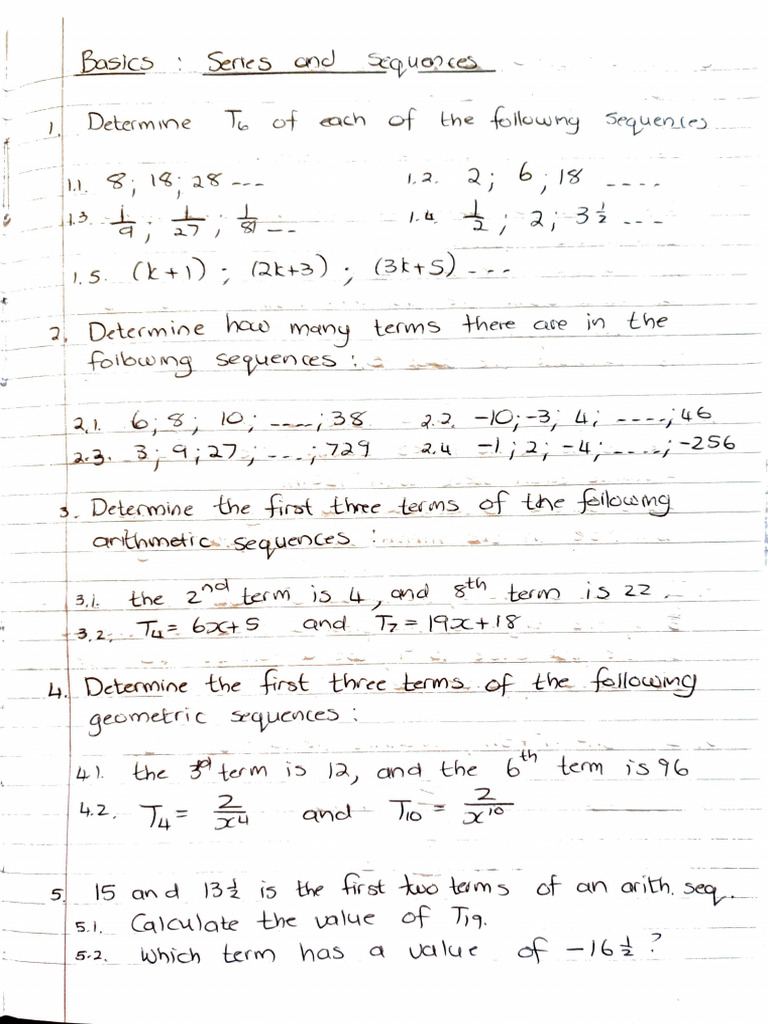 Basics : Series and Sequences
1. Determine T₆ of each of the following sequences
1.1. 8; 18; 28 --- 1.2. 2; 6; 18 ----
1.3 1/9; 1/27; 1/81 --- 1.4. 1/2; 2; 3 1/2 ---
1.5. (k+1); (2k+3); (3k+5) ---
2. Determine how many terms there are in the
following sequences :
2.1. 6; 8; 10; ----; 38 2.2. -10; -3; 4; ----; 46
2.3. 3; 9; 27; ---; 729 2.4 -1; 2; -4; ----; -256
3. Determine the first three terms of the following
arithmetic sequences :
3.1. the 2nd term is 4, and 8th term is 22.
3.2. T₄ = 6x+5 and T₇ = 19x+18
4. Determine the first three terms of the following
geometric sequences :
4.1. the 3rd term is 12, and the 6th term is 96
4.2. T₄ = 2/x⁴ and T₁₀ = 2/x¹⁰
5. 15 and 13 1/2 is the first two terms of an arith. seq.
5.1. Calculate the value of T₁₉.
5.2. Which term has a value of -16 1/2 ?